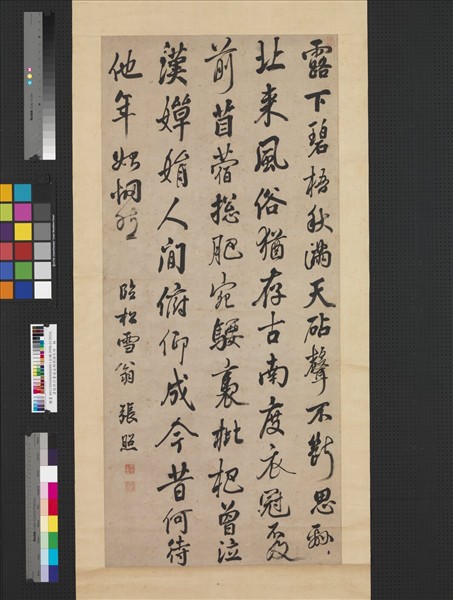 露下碧梧秋滿天砧聲不斷思緜〻
北來風俗猶存古南度衣冠不及
前苜蓿緫肥宛騕褭枇杷曾泣
漢嬋娟人間俯仰成今昔何待
他年始惘然 臨松雪翁 張照